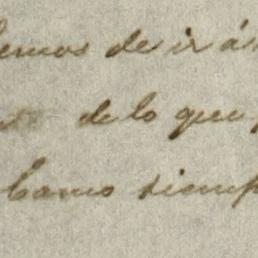 emos de ir á
de lo que
Como siemp